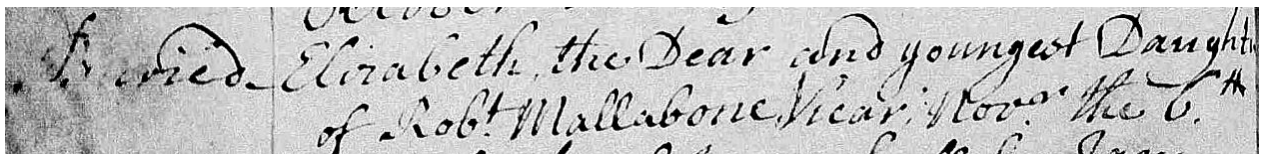 October
Buried Elizabeth, the Dear and youngest Daught
of Robt. Mallabone, Vicar; Novr. the 6th